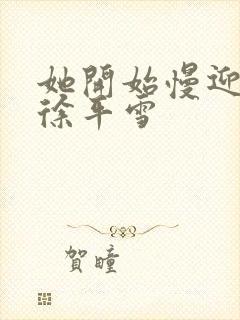 她開始慢迎
徐平雪
賀瞳